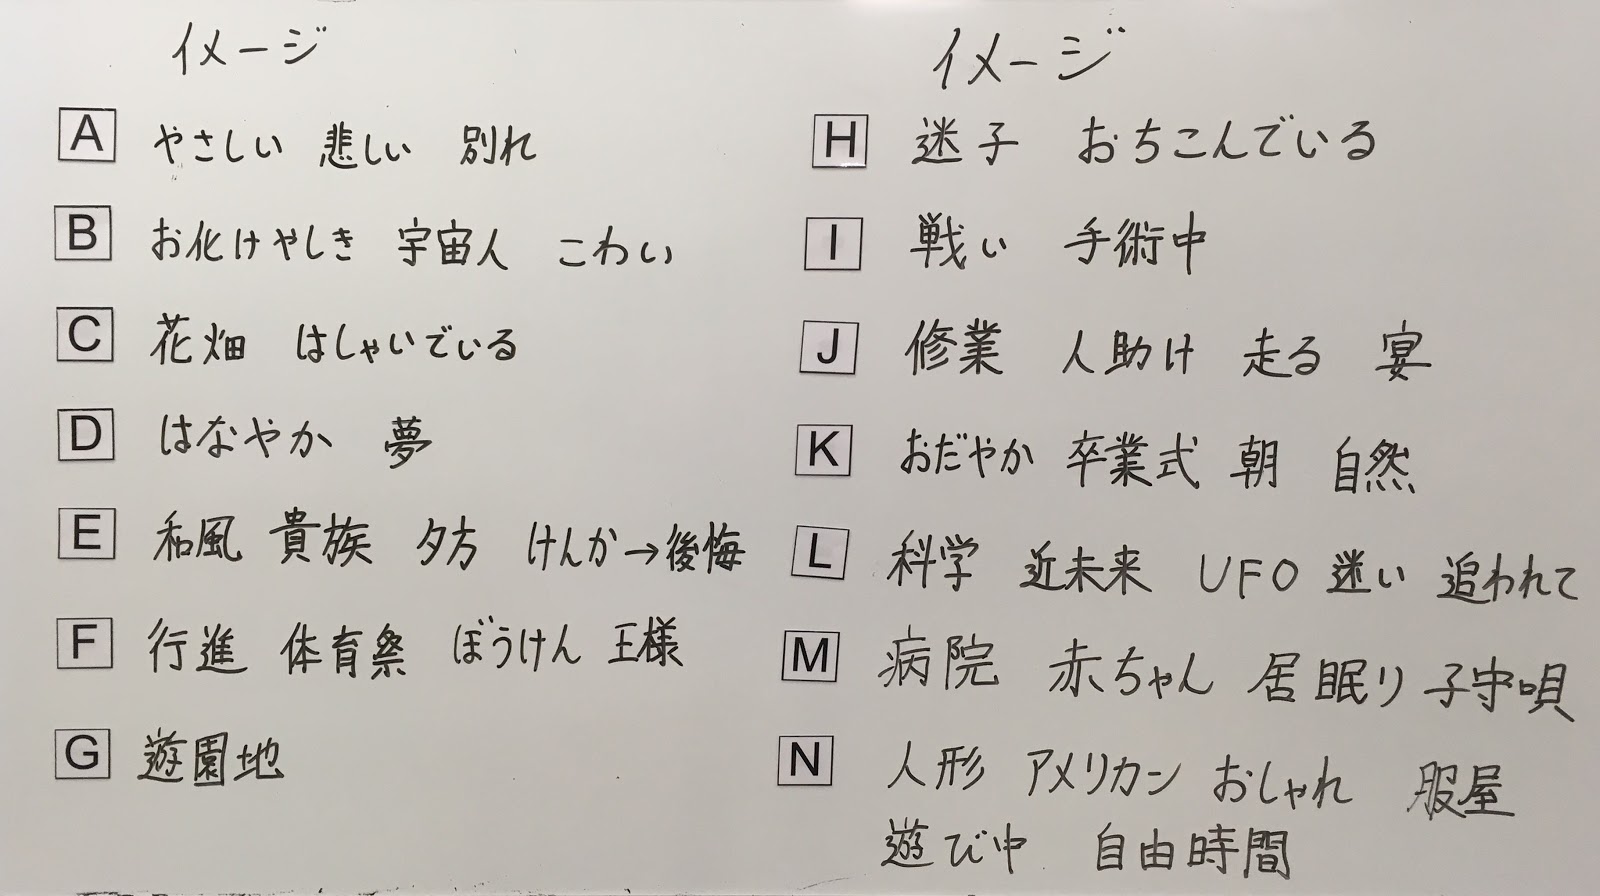 イメージ
A やさしい 悲しい 別れ
B お化けやしき 宇宙人 こわい
C 花畑 はしゃいでいる
D はなやか 夢
E 和風 貴族 夕方 けんか→後悔
F 行進 体育祭 ぼうけん 王様
G 遊園地
イメージ
H 迷子 おちこんでいる
I 戦い 手術中
J 修業 人助け 走る 宴
K おだやか 卒業式 朝 自然
L 科学 近未来 UFO 迷い 追われて
M 病院 赤ちゃん 居眠り 子守唄
N 人形 アメリカン おしゃれ 服屋
遊び中 自由時間